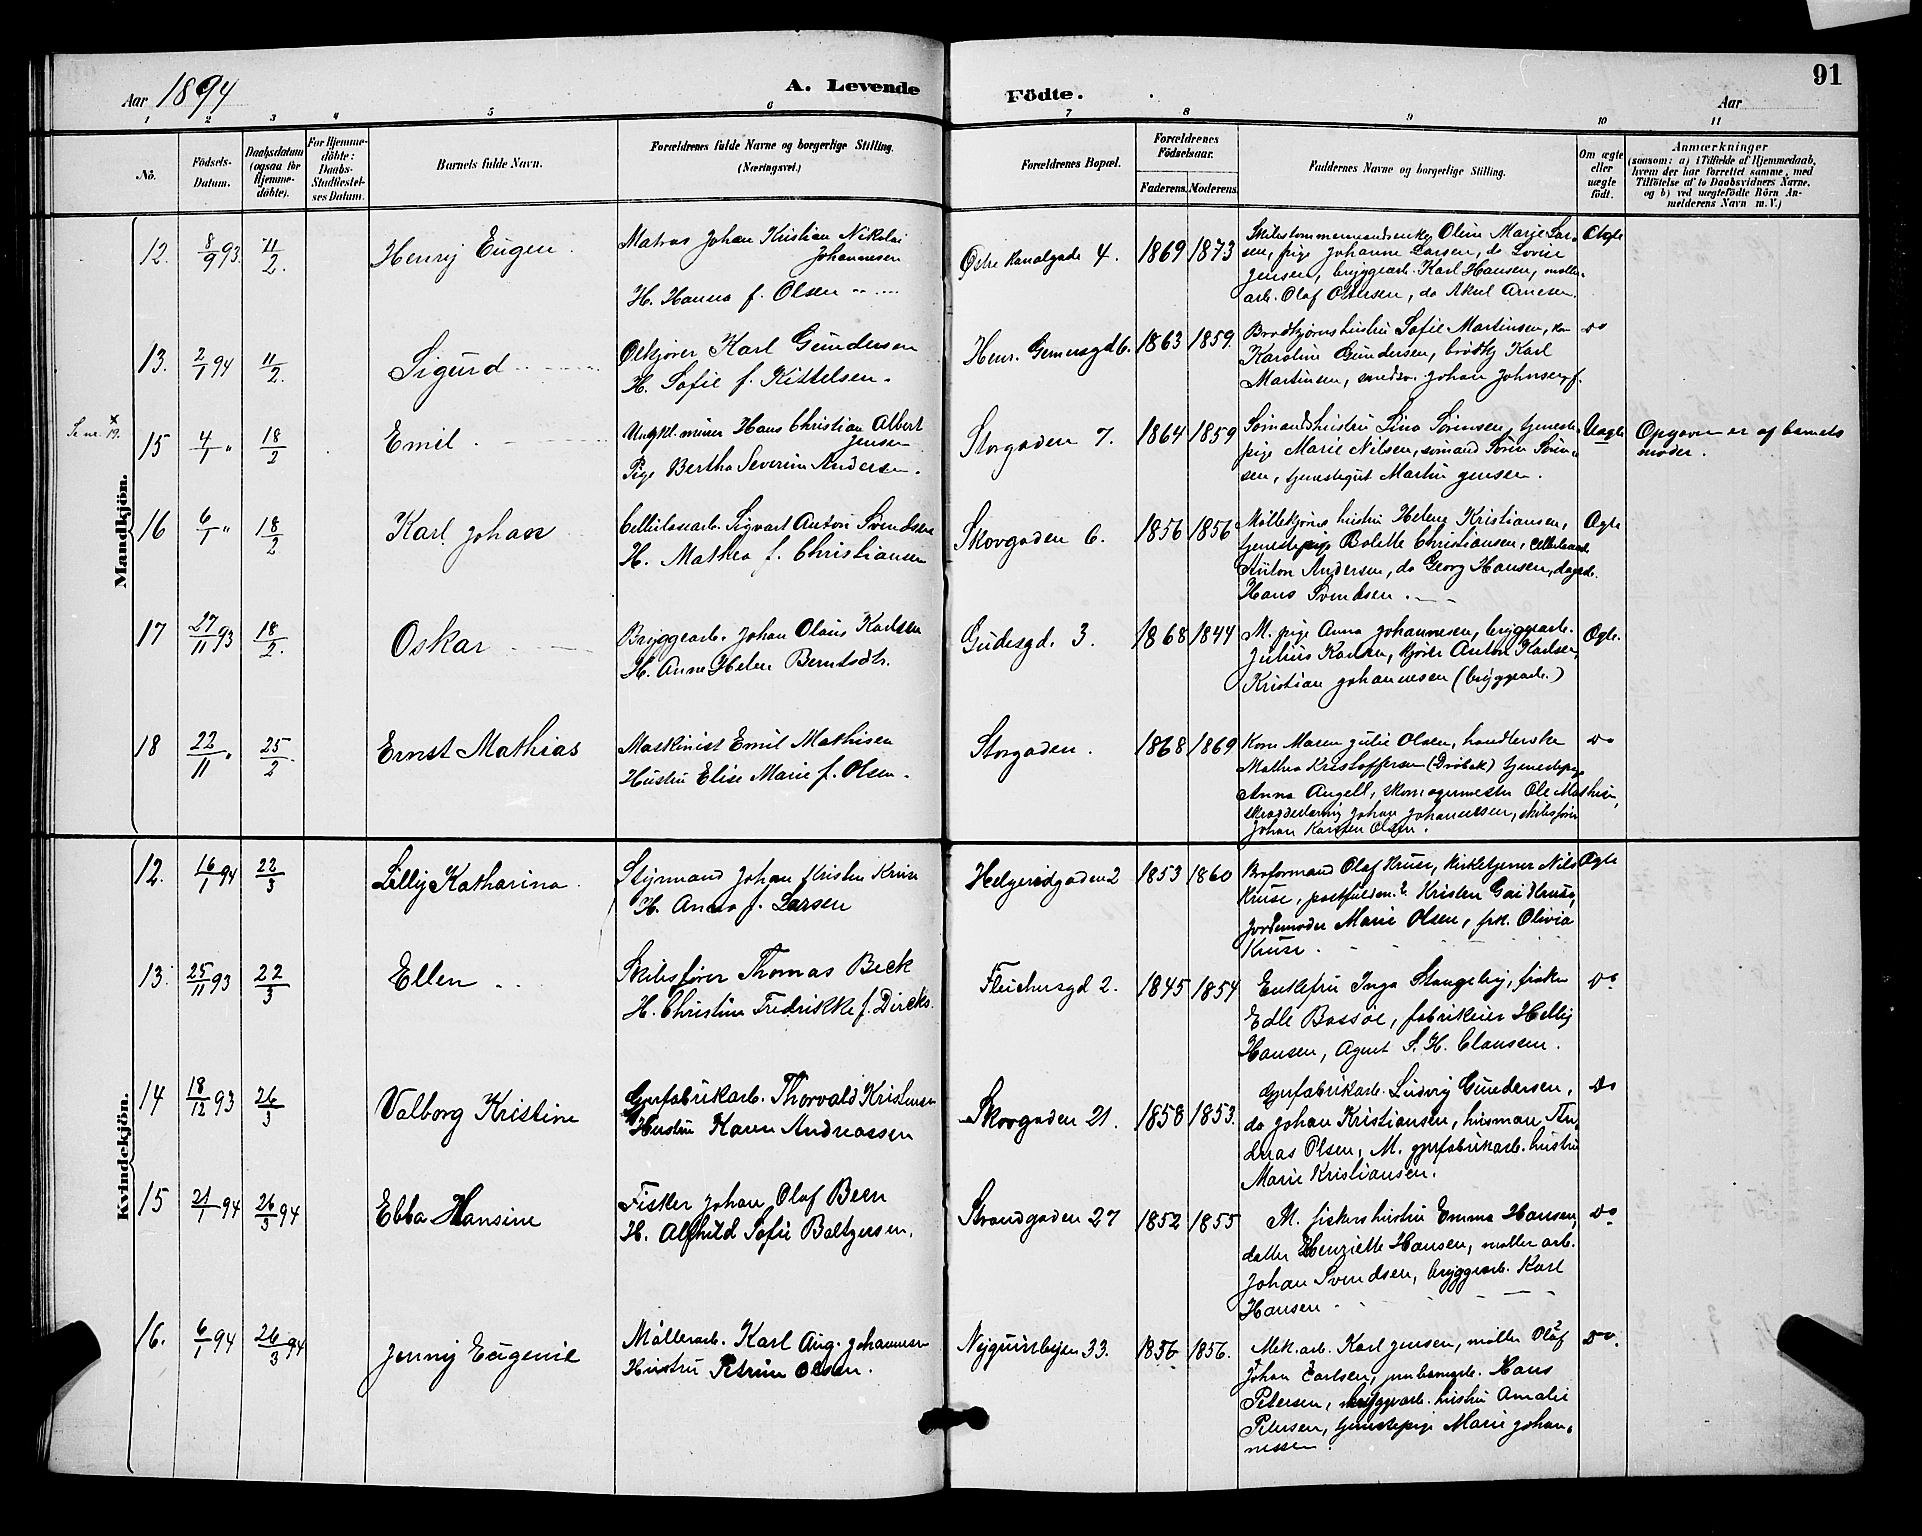 91
Aar 1894
A. Levende
Födte.
Aar
1 2 3 4 5 6 7 8 9 10 11
No.
Födsels-
Datum.
Daabsdatum
(ogsaa for
Hjemme-
döbte).
For Hjemme-
döbte:
Daabs-
Stadfæstel-
ses Datum.
Barnets fulde Navn.
Forældrenes fulde Navne og borgerlige Stilling.
(Næringsvei.)
Forældrenes Bopæl.
Forældrenes
Födselsaar.
Faderens. Moderens.
Faddernes Navne og borgerlige Stilling.
Om ægte
eller
uægte
født.
Anmærkninger
(saasom: a) i Tilfælde af Hjemmedaab,
hvem der har forrettet samme, med
Tilföielse af to Daabsvidners Navne,
og b) ved uægtefödte Börn An-
melderens Navn m. V.)
Mandkjön.
12. 8/9 93. 11/2. Henrij Eugen.
Matros Johan Kristian Nikolai
Johannesen
H. Hanna f. Olsen
Østre Kanalgade 4. 1869 1873
Oline Marie Lar-
sen, pige Johanne Larsen, do Lovise
Jensen, bryggearb. Karl Hansen, møller-
arb. Olaf Ottersen, do Aksel Arnesen.
Ægte
13. 2/1 94 11/2. Sigurd
Ølkjører Karl Gundersen
H. Sofie f. Kittelsen.
Henr. Gernersgd 6. 1863 1859.
Brødkjørers hustru Sofie Martinsen,
Karoline Gundersen, brødkj Karl
Martinsen, smedsv. Johan Johnsen
do
Se nr. 19. x
15 4/1 " 18/2 Emil.
Hans Christian Albert
Jensen
Pige Bertha Severine Andersen.
Storgaden 7. 1864 1859
Sømandshustru Lina Sørensen, tjeneste-
pige Marie Nilsen, sømand Søren Søren-
sen, tjenestegut Martin Jensen.
Uægte
Opgaven er af barnets
moder.
16 6/1 " 18/2 Karl Johan
Cellulosearb. Sigvart Anton Svendsen
H. Mathea f. Christiansen
Skovgaden 6. 1856 1856
Møllekjørers hustru Helene Kristiansen,
tjenestepige Bolette Christiansen,
Anton Andersen, do Georg Hansen, dagarb.
Hans Svendsen.
Ægte
17 27/11 93 18/2. Oskar
Bryggearb. Johan Olaus Karlsen
H. Anne Helene Berntsdtr.
Gudesgd. 3. 1868 1844
M. pige Anna Johannesen, bryggearb.
Julius Karlsen, kjører Anton Karlsen,
Kristian Johannesen (bryggearb.)
Ægte.
18 22/11 " 25/2. Ernst Mathias
Maskinist Emil Mathisen
Hustru Elise Marie f. Olsen.
Storgaden. 1868 1869
Kone Maren Julie Olsen, handlerske
Mathea Kristoffersen (Drøbak) tjenestepige
Anna Angell, skomagermester Ole Mathisen,
skrædderlærling Johan Johannessen, skibsfører
Johan Karsten Olsen.
do
Kvindekjön.
12. 16/1 94 22/3 Lilly Katharina.
Styrmand Johan Kristen Kruse
H. Anna f. Larsen
Helgerødgaden 2 1853 1860
Broformand Olaf Kruse, kirketjener Nils
Kruse, postfuldm. Kristen Kruse,
jordemoder Marie Olsen, frk. Olivia
Kruse.
Ægte
13. 25/11 93 22/3 Ellen
Skibsfører Thomas Beck
H. Christine Fredrikke f. Dircks.
Fleichersgd 2. 1845 1854
Enkefru Inga Stangeby, frøken
Edle Bassøe, fabrikeier Helly
Hansen, Agent S. H. Claussen.
do
14 18/12 93 26/3 Valborg Kristine
Gjærfabrikarb. Thorvald Kristensen
Hustru Karen Andreassen
Skovgaden 21. 1858 1853.
Gjærfabrikarb. Ludvig Gundersen,
do Johan Kristiansen, husmann An-
dreas Olsen, M. gjærfabrikarb. hustru
Marie Kristiansen.
do
15 21/1 94 26/3 94 Ebba Hansine
Fisker Johan Olaf Been
H. Alfhild Sofie Baltzersen.
Strandgaden 27 1852 1855
M. fiskers hustru Emma Hansen,
datter Henriette Hansen, møller arb.
Johan Svendsen, bryggearb. Karl
Hansen
do
16. 6/1 94 26/3 94 Jenny Eugenie
Møllerarb. Karl Aug. Johannesen
Hustru Petrine Olsen.
Nyquistbyen 33. 1856 1856.
Mek. arb. Karl Jensen, møller Olaf
Johan Carlsen, jernbanearb. Hans
Petersen, bryggearb. hustru Amalie
Petersen, tjenestepige Marie Johan-
nessen.
do